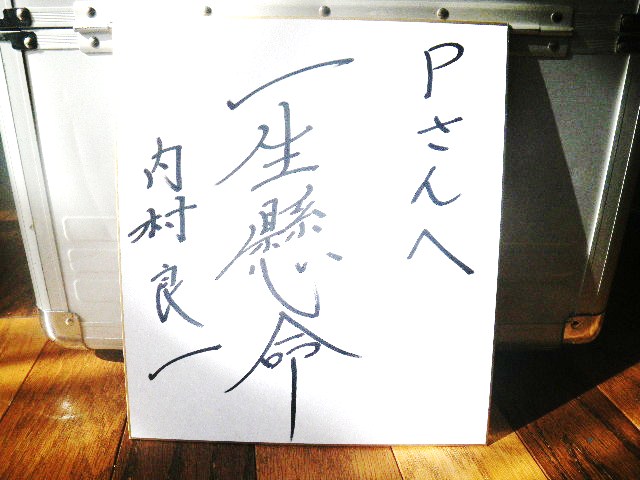 Pさんへ
一生懸命
内村良一